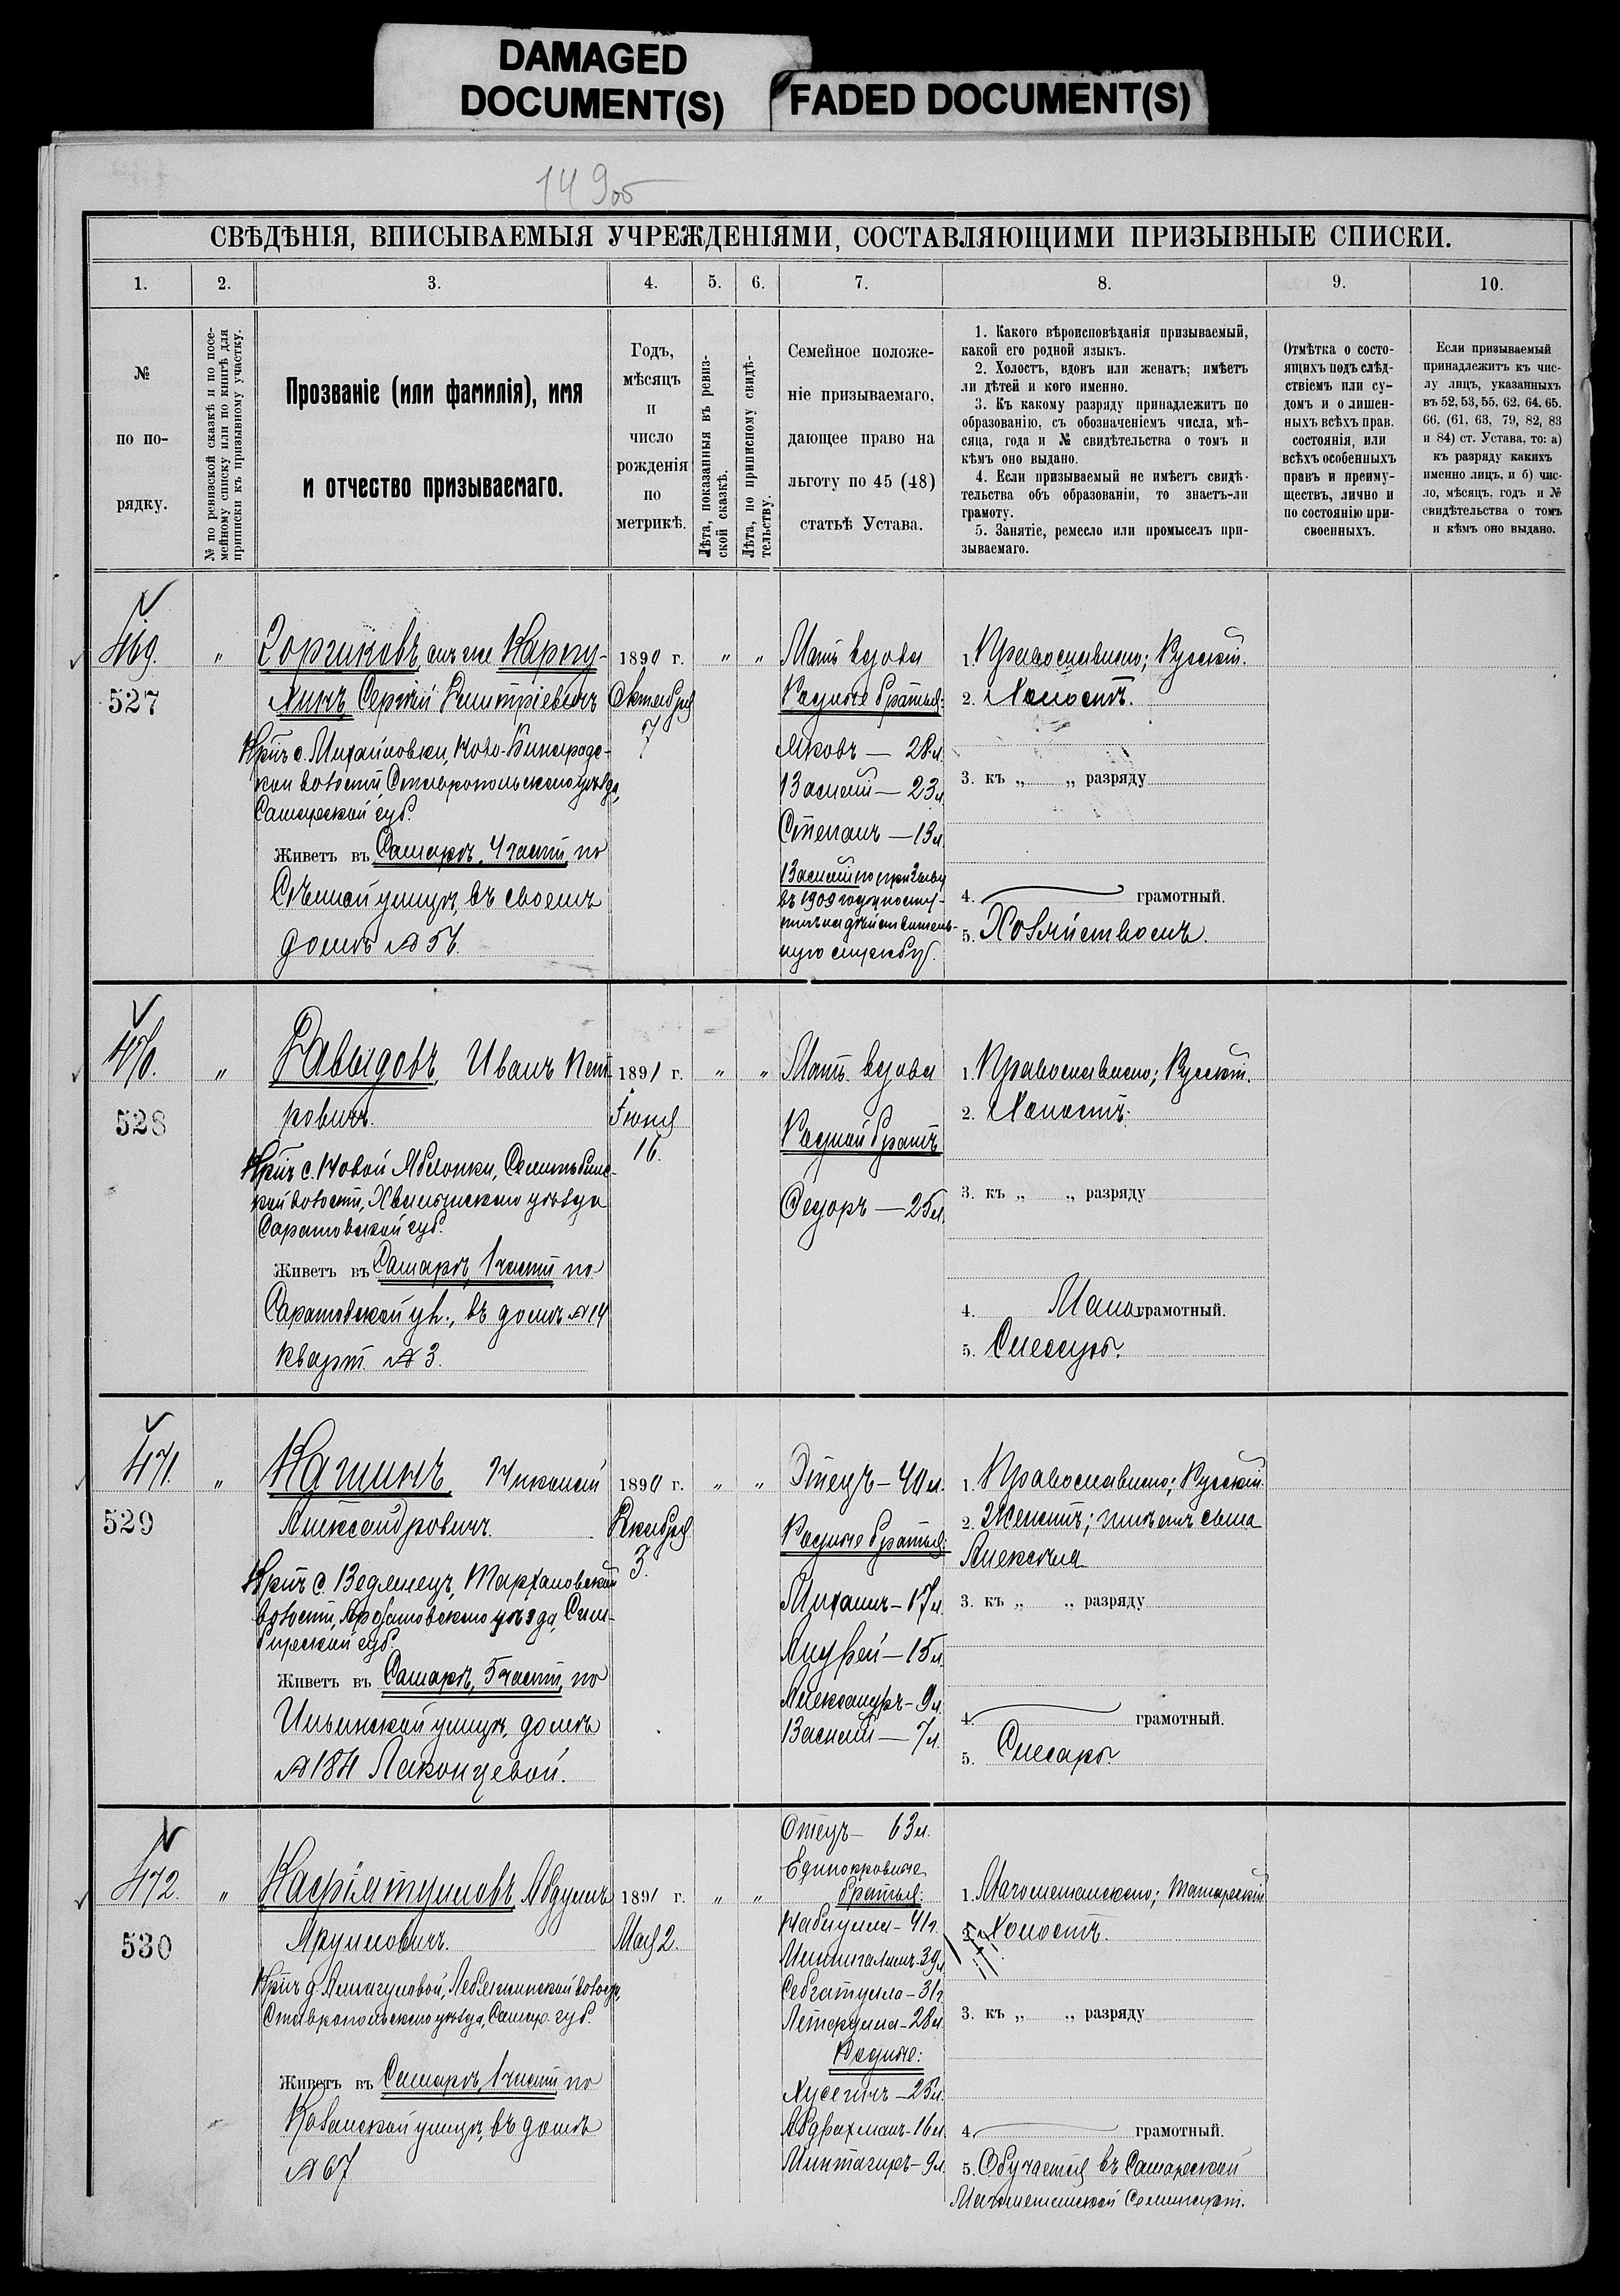 DAMAGED
DOCUMENT(S)
FADED DOCUMENT(S)
149об
СВѢДѢНІЯ, ВПИСЫВАЕМЫЯ УЧРЕЖДЕНІЯМИ, СОСТАВЛЯЮЩИМИ ПРИЗЫВНЫЕ СПИСКИ.
1.
2.
3.
4.
5.
6.
7.
8.
9.
10.
№
по по-
рядку.
№ по ревизской сказкѣ и по посе-
мейному списку или по книгѣ для
приписки къ призывному участку.
Прозваніе (или фамилія), имя
и отчество призываемаго.
Годъ,
мѣсяцъ
и
число
рожденія
по
метрикѣ.
Лѣта, показанныя въ ревиз-
ской сказкѣ.
Лѣта, по приписному свидѣ-
тельству.
Семейное положе-
ніе призываемаго,
дающее право на
льготу по 45 (48)
статьѣ Устава.
1. Какого вѣроисповѣданія призываемый,
какой его родной языкъ.
2. Холостъ, вдовъ или женатъ; имѣетъ
ли дѣтей и кого именно.
3. Къ какому разряду принадлежитъ по
образованію, съ обозначеніемъ числа, мѣ-
сяца, года и № свидѣтельства о томъ и
кѣмъ оно выдано.
4. Если призываемый не имѣетъ свидѣ-
тельства объ образованіи, то знаетъ-ли
грамоту.
5. Занятіе, ремесло или промыселъ при-
зываемаго.
Отмѣтка о состо-
ящихъ подъ слѣд-
ствіемъ или су-
домъ и о лишен-
ныхъ всѣхъ прав.
состоянія, или
всѣхъ особенныхъ
правъ и преиму-
ществъ, лично и
по состоянію при-
своенныхъ.
Если призываемый
принадлежитъ къ чис-
лу лицъ, указанныхъ
въ 52, 53, 55, 62, 64, 65,
66, (61, 63, 79, 82, 83
и 84) ст. Устава, то: а)
къ разряду какихъ
именно лицъ, и б) чис-
ло, мѣсяцъ, годъ и №
свидѣтельства о томъ
и кѣмъ оно выдано.
469.
527
"
Горшковъ, онъ же Карпу-
хинъ, Сергѣй Дмитріевичъ
Крнъ с. Михайловки, Ново-Бинарадс-
кой волости, Ставропольскаго уѣзда,
Самарской губ.
Живетъ въ Самарѣ, 4 части, по
улицѣ, въ своемъ
домѣ № 56.
1890 г.
Октября
7
"
"
Мать вдова
Родные братья:
Яковъ — 28 л.
Василій — 23 л.
Степанъ — 13 л.
Василій по призыву
въ 1909 году посту-
пилъ на дѣйствитель-
ную службу.
1. Православнаго; Русскій.
2. Холостъ.
3. къ „ „ разряду
4. грамотный.
5. Хозяйствомъ.
470.
528
"
Давыдовъ, Иванъ Пет-
ровичъ.
Крнъ с. Новой Яблонки,
кой волости, Хвалынскаго уѣзда
Саратовской губ.
Живетъ въ Самарѣ, 1 части по
Саратовской ул., въ домѣ № 14
кварт. № 3.
1891 г.
Іюня
16.
"
"
Мать вдова
Родной братъ
Федоръ — 25 л.
1. Православнаго; Русскій.
2. Холостъ.
3. къ „ „ разряду
4. Мало грамотный.
5. Слесарь.
471.
529
"
Кашинъ, Николай
Александровичъ.
Крнъ с. Ведянецъ, Тархановской
волости, Ардатовскаго уѣзда, Сим-
бирской губ.
Живетъ въ Самарѣ, 5 части, по
Ильинской улицѣ, домъ
№ 184 Лаконцевой.
1890 г.
Декабря
3.
"
"
Отецъ — 40 л.
Родные братья:
Михаилъ — 17 л.
Андрей — 15 л.
Александръ — 9 л.
Василій — 7 л.
1. Православнаго; Русскій.
2. Женатъ; имѣетъ сына
Алексѣя
3. къ „ „ разряду
4. грамотный.
5. Слесарь.
472.
530
"
Абдулъ
Крнъ д. волости,
Ставропольскаго уѣзда, Самар. губ.
Живетъ въ Самарѣ, 1 части, по
Казанской улицѣ, въ домѣ
№ 67
1891 г.
Мая 2.
"
"
Отецъ — 63 л.
Единокровные
братья:
Набиулла — 41 г.
39 л.
Себгатулла — 31 г.
28 л.
Родные:
Хусеинъ — 25 л.
Абдрахманъ — 16 л.
Минтагиръ — 9 л.
1. Магометанскаго; Татарскій
2. Холостъ.
3. къ „ „ разряду
4. грамотный.
5. Обучается въ Самарской
Магометанской Семинаріи.